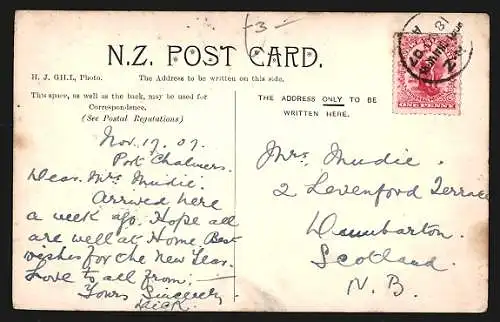 -3-
N.Z. POST CARD.
H. J. GILL, Photo.
The Address to be written on this side.
This space, as well as the back, may be used for
Correspondence.
(See Postal Regulations)
THE ADDRESS ONLY TO BE
WRITTEN HERE.
ONE PENNY
Nov. 17. 07.
Port Chalmers.
Dear Mrs Mudie.
Arrived here
a week ago. Hope all
are well at Home. Best
wishes for the New Year.
Love to all from:—
Yours Sincerely
Dick.
Mrs Mudie.
2 Levenford Terrace
Dumbarton.
Scotland.
N. B.